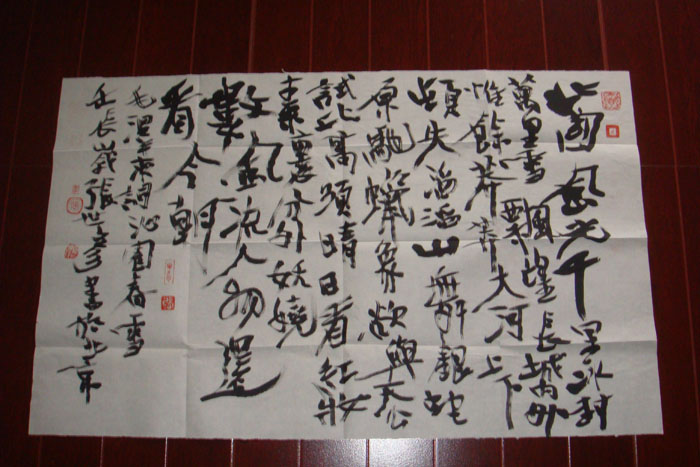 北國風光千里冰封
萬里雪飄望長城內外
惟餘莽莽大河上下
頓失滔滔山舞銀蛇
原馳蠟象欲與天公
試比高須晴日看紅妝
素裹分外妖嬈
數風流人物還
看今朝
毛澤東詞沁園春雪
張世書於